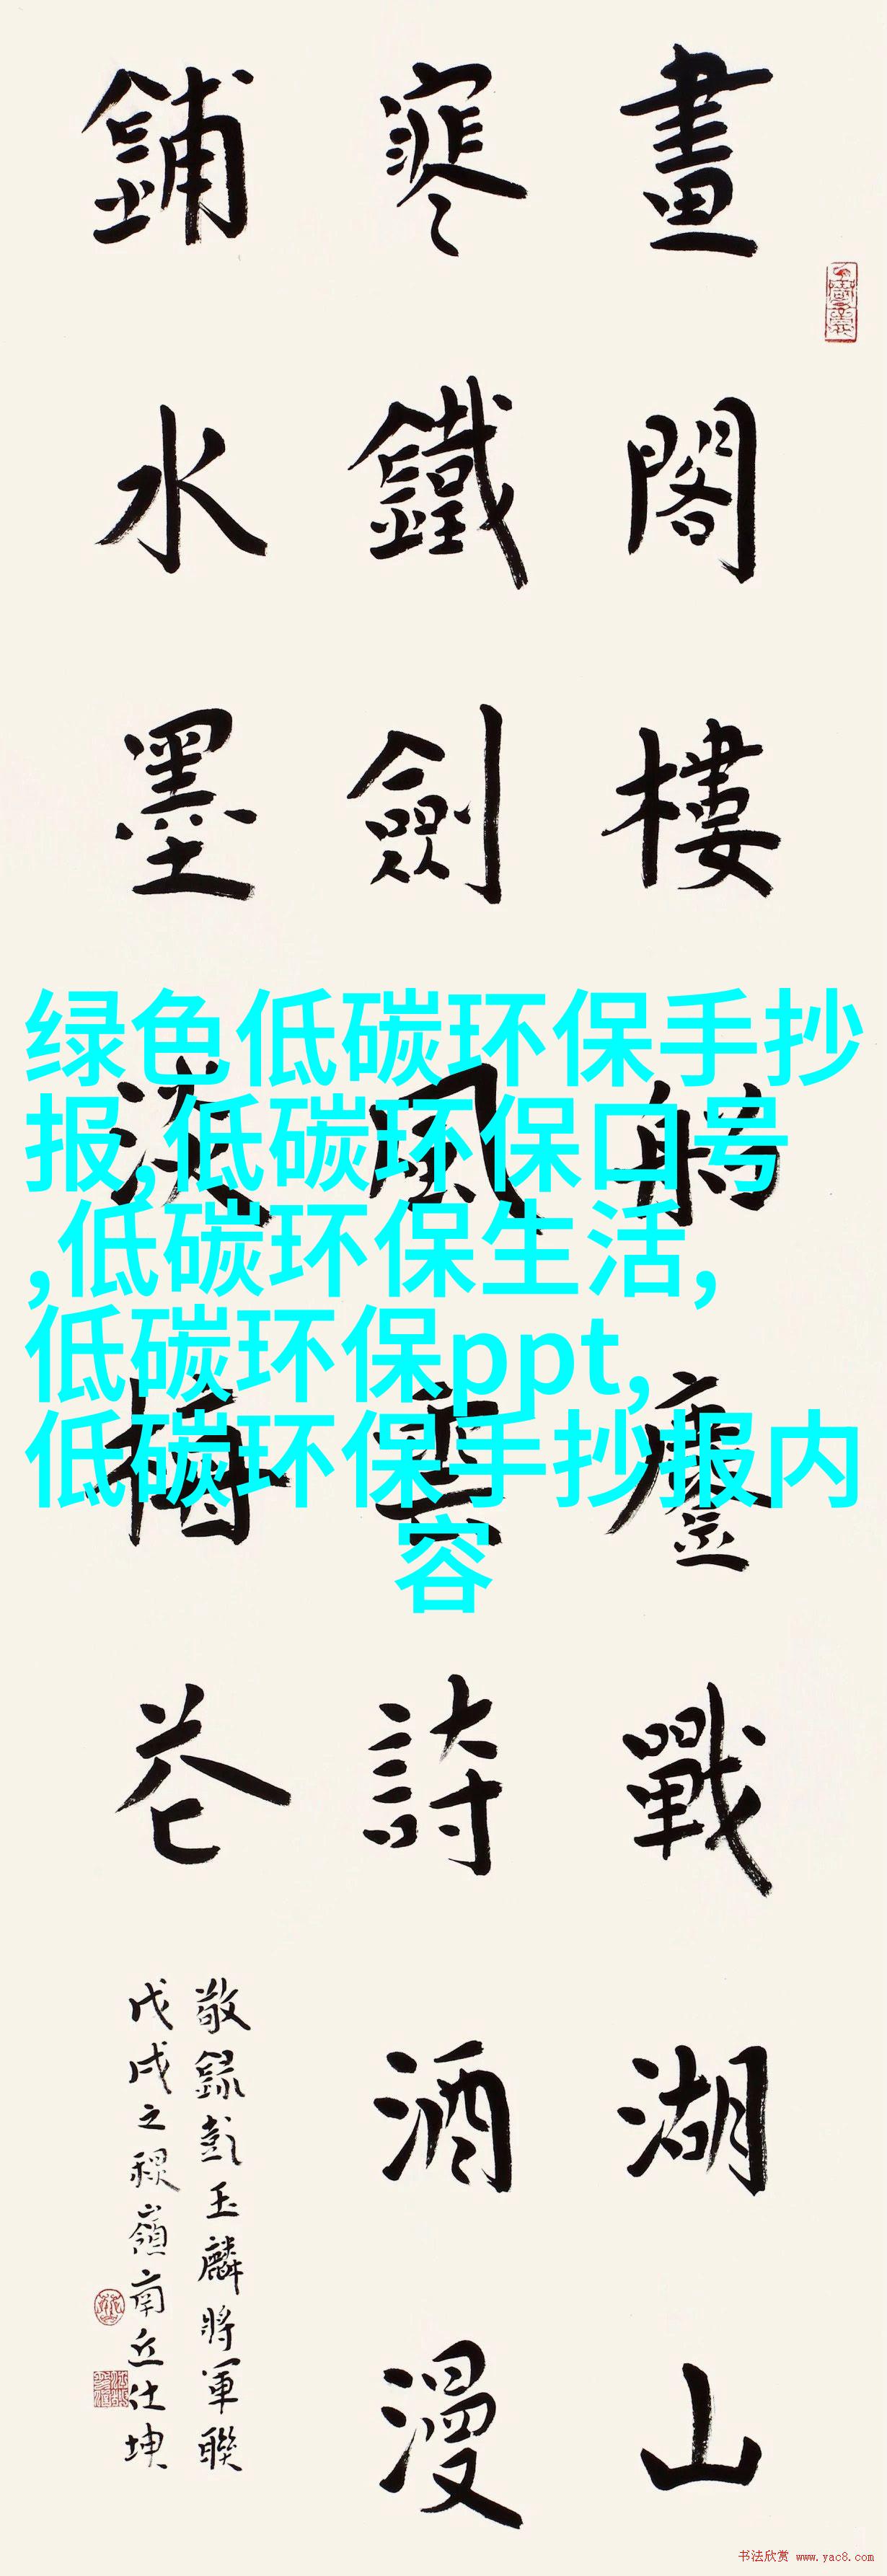 畫閣樓船鏖戰湖山
寒鐵劍風雲詩酒漫
鋪水墨淡梅花
敬錄彭玉麟將軍聯
戊戌之穐嶺南丘仕坤
绿色低碳环保手抄
报,低碳环保口号
,低碳环保生活,
低碳环保ppt,
低碳环保手抄报内
容
书法欣赏 www.yac8.com